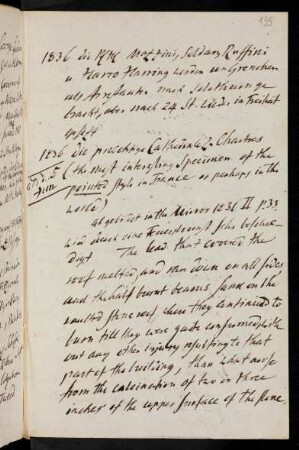 139
1836 die HH. Mazzini, Soldan, Ruffini
u Harro Harring werden in Grenchen
als Arrestanten nach Solothurn ge
bracht, aber nach 24 St. wieder in Freiheit
gesetzt
1836 die prächtige Cathedrale v. Chartres
4/5 Juni
(the most interesting Specimen of the
pointed style in France or perhaps in the
world)
abgebildet im Mirror 1836 II p. 33
wird durch eine Feuersbrunst sehr beschä
digt The lead that covered the
roof melted, and ran down on all sides
and the half burnt beams sank on the
vaulted stone roof where they continued to
burn till they were quite consumed with
out any other injury resulting to that
part of the building, than that arose
from the calcination of two or three
inches of the upper surface of the stone